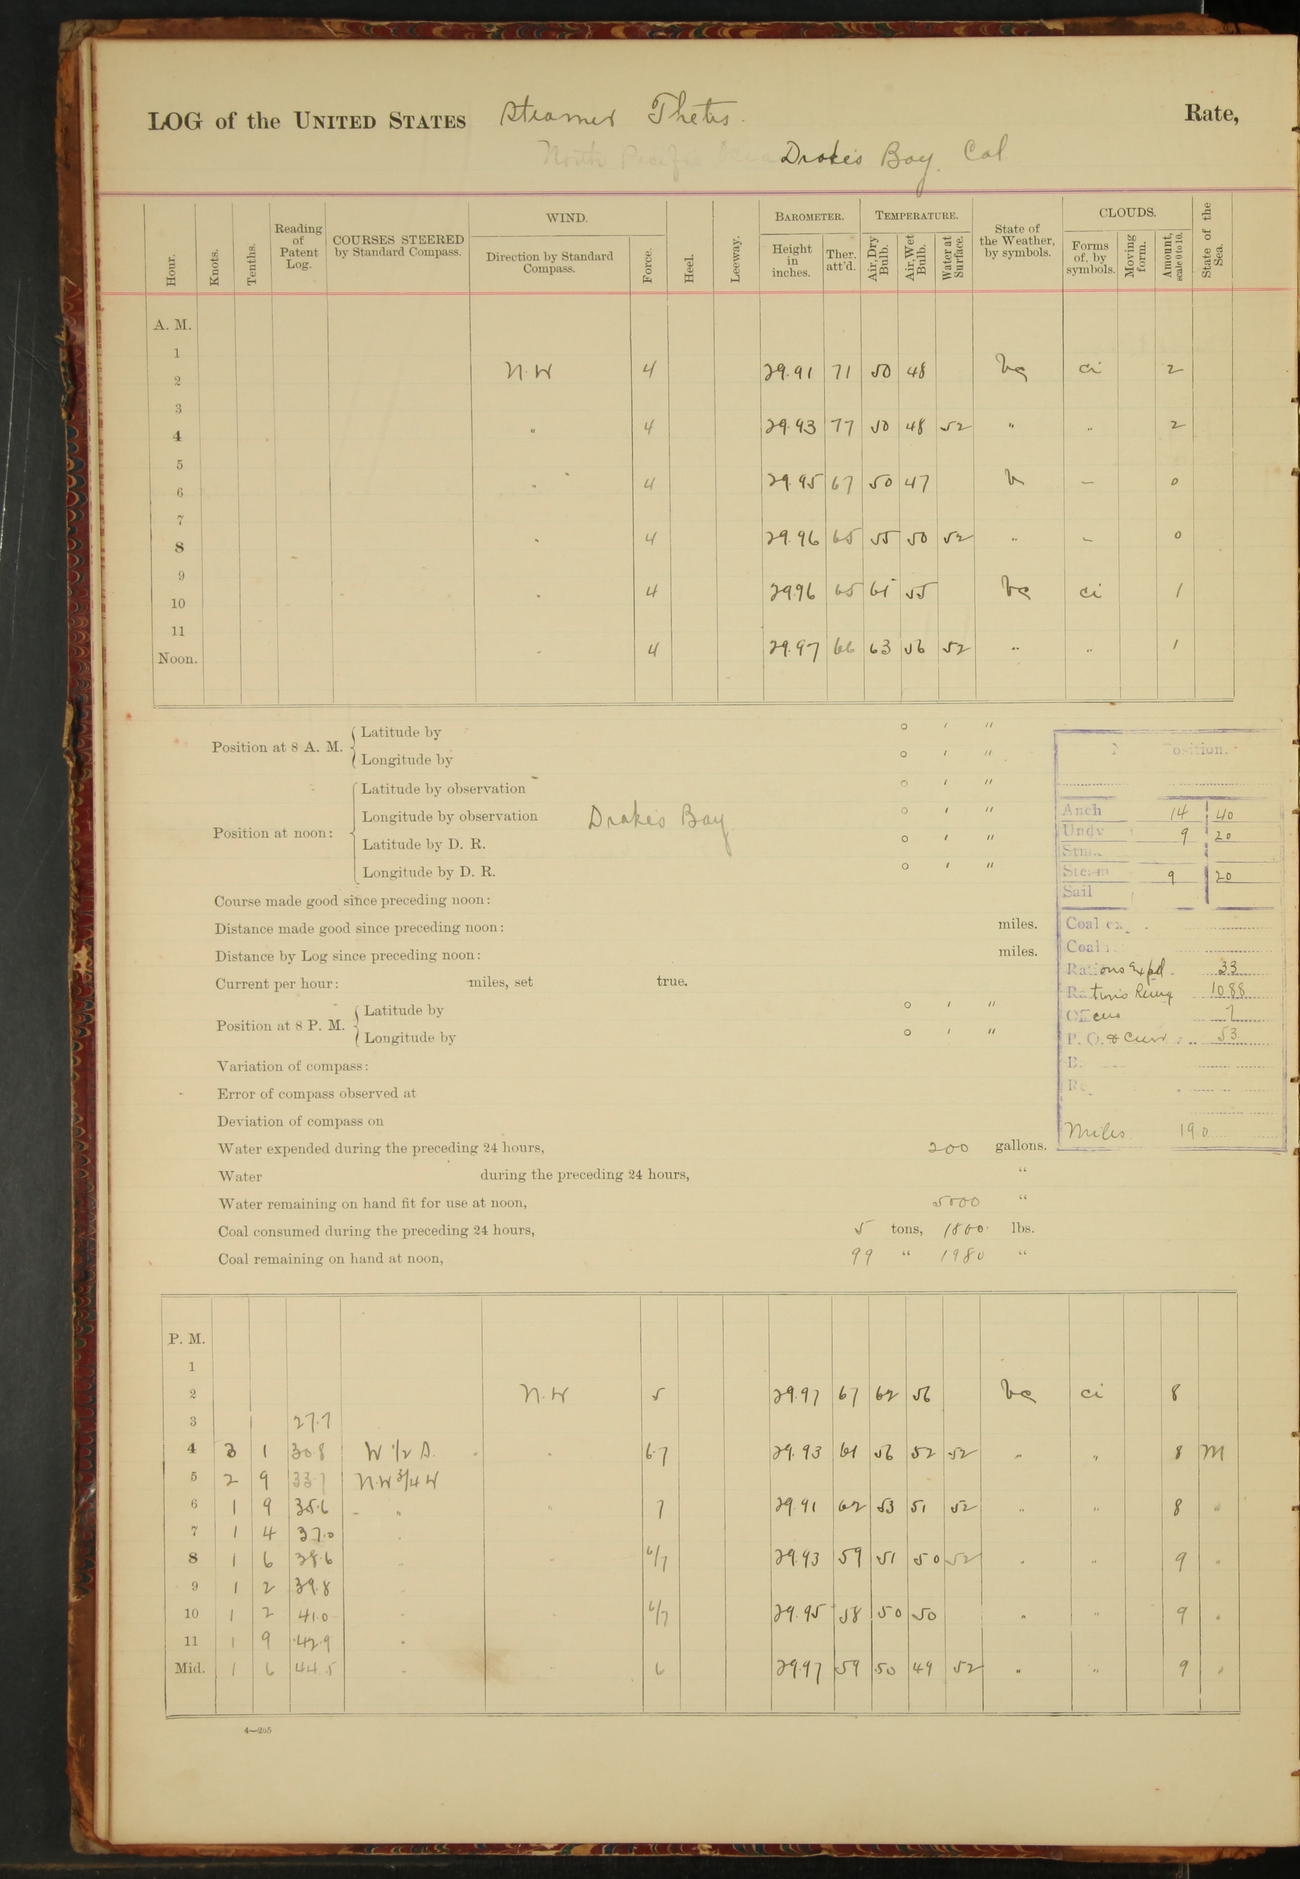 LOG of the UNITED STATES Steamer Thetis. Rate,
North Pacific Drakes Bay. Cal
Hour. Knots. Tenths. Reading of Patent Log. COURSES STEERED by Standard Compass. WIND. Direction by Standard Compass. Force. Heel. Leeway. BAROMETER. Height in inches. Ther. att'd. TEMPERATURE. Air, Dry Bulb. Air, Wet Bulb. Water at Surface. State of the Weather, by symbols. CLOUDS. Forms of, by symbols. Moving form. Amount, scale 0 to 10. State of the Sea.
A. M.
1
2 N.W 4 29.91 71 50 48 bc ci 2
3
4 " 4 29.93 77 50 48 52 " " 2
5
6 " 4 29.95 67 50 47 b — 0
7
8 " 4 29.96 65 55 50 52 " — 0
9
10 " 4 29.96 65 61 55 bc ci 1
11
Noon. " 4 29.97 66 63 56 52 " " 1
Position at 8 A. M. Latitude by ° ′ ″
Longitude by ° ′ ″
Position at noon: Latitude by observation ° ′ ″
Longitude by observation Drakes Bay ° ′ ″
Latitude by D. R. ° ′ ″
Longitude by D. R. ° ′ ″
Course made good since preceding noon:
Distance made good since preceding noon: miles.
Distance by Log since preceding noon: miles.
Current per hour: miles, set true.
Position at 8 P. M. Latitude by ° ′ ″
Longitude by ° ′ ″
Variation of compass:
Error of compass observed at
Deviation of compass on
Water expended during the preceding 24 hours, 200 gallons.
Water during the preceding 24 hours, "
Water remaining on hand fit for use at noon, 5000 "
Coal consumed during the preceding 24 hours, 5 tons, 1800 lbs.
Coal remaining on hand at noon, 99 " 1980 "
osition.
Anch 14 40
Undr 9 20
Steam 9 20
Sail
Coal ex
Coal
Rations Expd. 33
Rations Remg 1088
Officers 7
P. O. & Crew 53
Miles 190
P. M.
1
2 N.W 5 29.97 67 62 56 bc ci 8
3 27.7
4 3 1 30.8 W 1/2 S. " 6.7 29.93 61 56 52 52 " " 8 M
5 2 9 33.7 NW 3/4 W
6 1 9 35.6 " " 7 29.91 62 53 51 52 " " 8 "
7 1 4 37.0 "
8 1 6 38.6 " 6/7 29.93 59 51 50 52 " " 9 "
9 1 2 39.8 "
10 1 2 41.0 " " 6/7 29.95 58 50 50 " " 9 "
11 1 9 42.9 "
Mid. 1 6 44.5 " " 6 29.97 59 50 49 52 " " 9 "
4—205